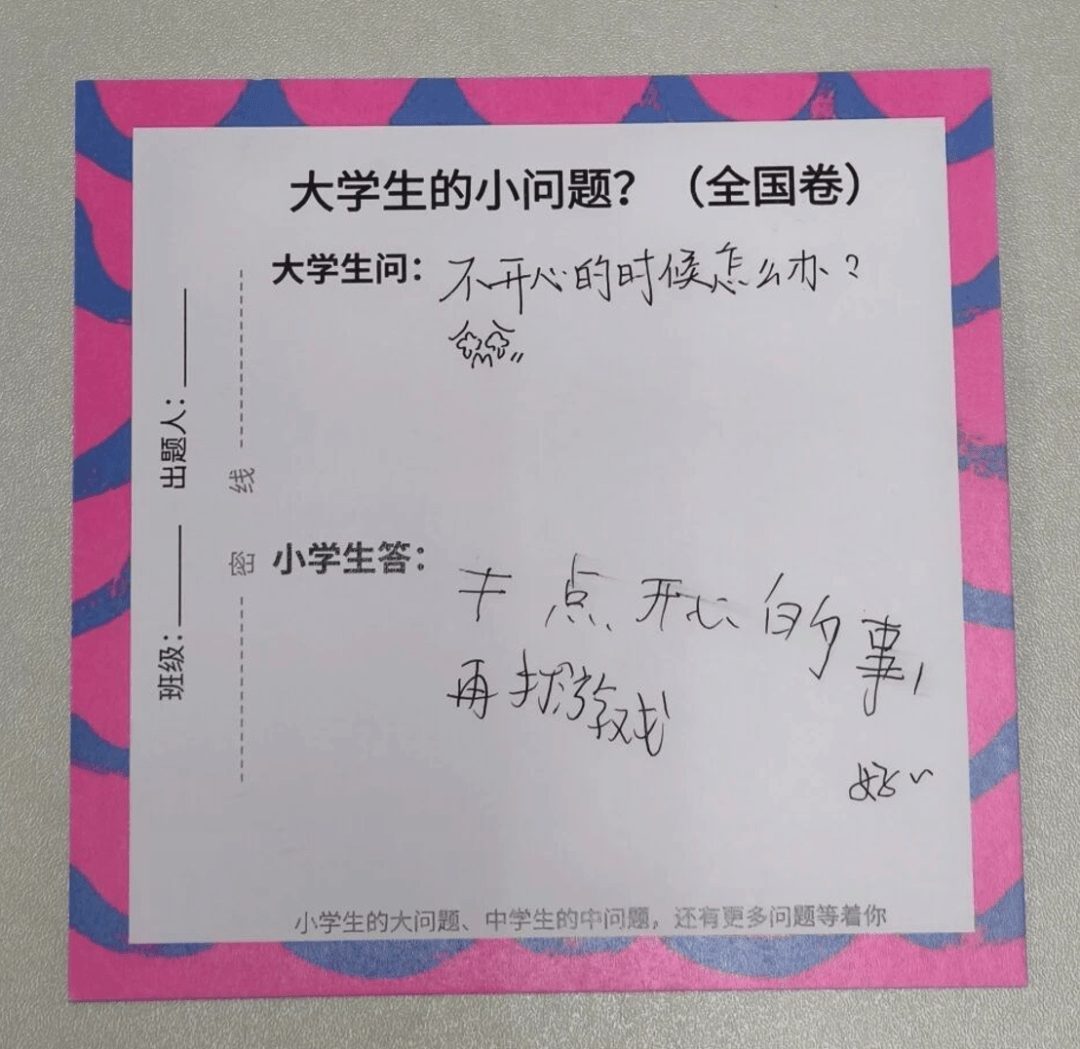 大学生的小问题？（全国卷）
大学生问：不开心的时候怎么办？
小学生答：干点开心的事，
再打游戏
好~
班级：
出题人：
密 线
小学生的大问题、中学生的中问题，还有更多问题等着你